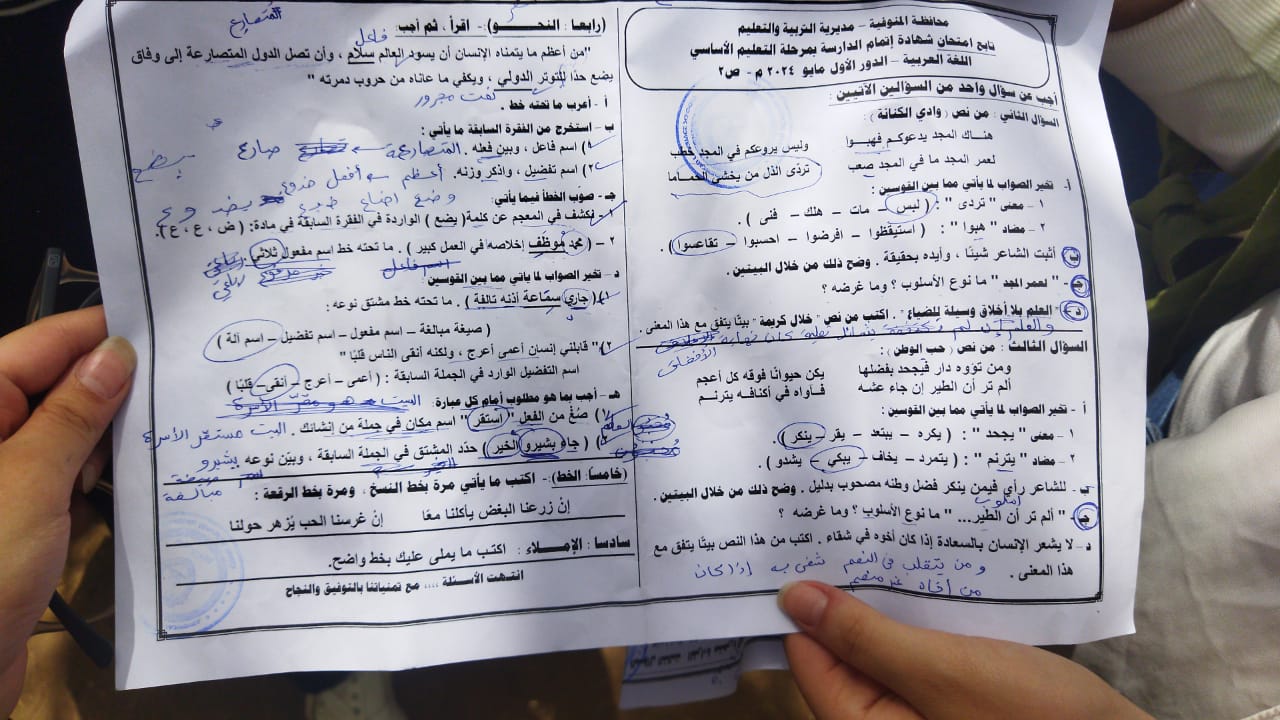 محافظة المنوفية – مديرية التربية والتعليم
تابع امتحان شهادة إتمام الدارسة بمرحلة التعليم الأساسي
اللغة العربية – الدور الأول مايو ٢٠٢٤ م – ص٢
أجب عن سؤال واحد من السؤالين الآتيين :
السؤال الثاني : من نص (وادي الكنانة) :
هنـاك المجد يدعوكـم فهبـوا وليس يروعكم في المجد خطب
لعمر المجد ما في المجد صعب تردَّى الذل من يخشى الحمـاما
أ- تخير الصواب لما يأتي مما بين القوسين :
١ – معنى " تردى " : ( لبس – مات – هلك – فنى ) .
٢ – مضاد " هبوا " : ( استيقظوا – افرضوا – احسبوا – تقاعسوا ) .
ب- أثبت الشاعر شيئًا ، وأيده بحقيقة . وضح ذلك من خلال البيتين .
جـ - " لعمر المجد " ما نوع الأسلوب ؟ وما غرضه ؟
د – " العلم بلا أخلاق وسيلة للضياع " . اكتب من نص " خلال كريمة " بيتًا يتفق مع هذا المعنى .
والعلم إن لم تكتنفه شمائل تعليه كان نهاية
الإخفاق
السؤال الثالث : من نص (حب الوطن) :
ومن تؤوه دار فيجحد بفضلها يكن حيوانًا فوقه كل أعجم
ألم تر أن الطير إن جاء عشه فآواه في أكنافه يترنـم
أ – تخير الصواب لما يأتي مما بين القوسين :
١ – معنى " يجحد " : ( يكره – يبتعد – يقر – ينكر ) .
٢ – مضاد " يترنم " : ( يتمرد – يخاف – يبكي – يشدو ) .
ب – للشاعر رأي فيمن ينكر فضل وطنه مصحوب بدليل . وضح ذلك من خلال البيتين .
أسلوب
جـ – " ألم تر أن الطير.... " ما نوع الأسلوب ؟ وما غرضه ؟
د – لا يشعر الإنسان بالسعادة إذا كان أخوه في شقاء . اكتب من هذا النص بيتًا يتفق مع
هذا المعنى .
ومن يتقلب في النعيم شقى به إذا كان
من أخاه غير منعم
المتصارع
(رابعًا : النحـــــو) :- اقرأ ، ثم أجب :
فاعل
"من أعظم ما يتمناه الإنسان أن يسود العالم سلام ، وأن تصل الدول المتصارعة إلى وفاق
يضع حدًا للتوتر الدولي ، ويكفي ما عاناه من حروب دمرته "
نعت مجرور
أ – أعرب ما تحته خط .
ب – استخرج من الفقرة السابقة ما يأتي :
١) اسم فاعل ، وبين فعله . المتصارعة صارع
٢) اسم تفضيل ، واذكر وزنه . أعظم أفعل
جـ – صوّب الخطأ فيما يأتي: وضع
١ – نكشف في المعجم عن كلمة ( يضع ) الواردة في الفقرة السابقة في مادة: ( ض ، ع ، ع ).
٢ – ( محمد مُوظّف إخلاصه في العمل كبير ) . ما تحته خط اسم مفعول ثلاثي .
اسم فاعل
د – تخير الصواب لما يأتي مما بين القوسين :
١) ( جاري سمّاعة أذنه تالفة ) . ما تحته خط مشتق نوعه :
( صيغة مبالغة – اسم مفعول – اسم تفضيل – اسم آلة )
٢) " قابلني إنسان أعمى أعرج ، ولكنه أنقى الناس قلبًا "
اسم التفضيل الوارد في الجملة السابقة : ( أعمى – أعرج – أنقى – قلبًا )
هـ – أجب بما هو مطلوب أمام كل عبارة :
١) صُغْ من الفعل " استقر " اسم مكان في جملة من إنشائك . البيت مستقَر الأسرة
٢) ( جاء بشيرو الخير ) حدّد المشتق في الجملة السابقة ، وبيّن نوعه . بشيرو
مبالغة
(خامسًا: الخط):- اكتب ما يأتي مرة بخط النسخ ، ومرة بخط الرقعة :
إنْ زرعنا البغض يأكلنا معًا إنْ غرسنا الحب يزهر حولنا
سادسا : الإمـــلاء : اكتب ما يملى عليك بخط واضح.
انتهت الأسئلة ،،،، مع تمنياتنا بالتوفيق والنجاح